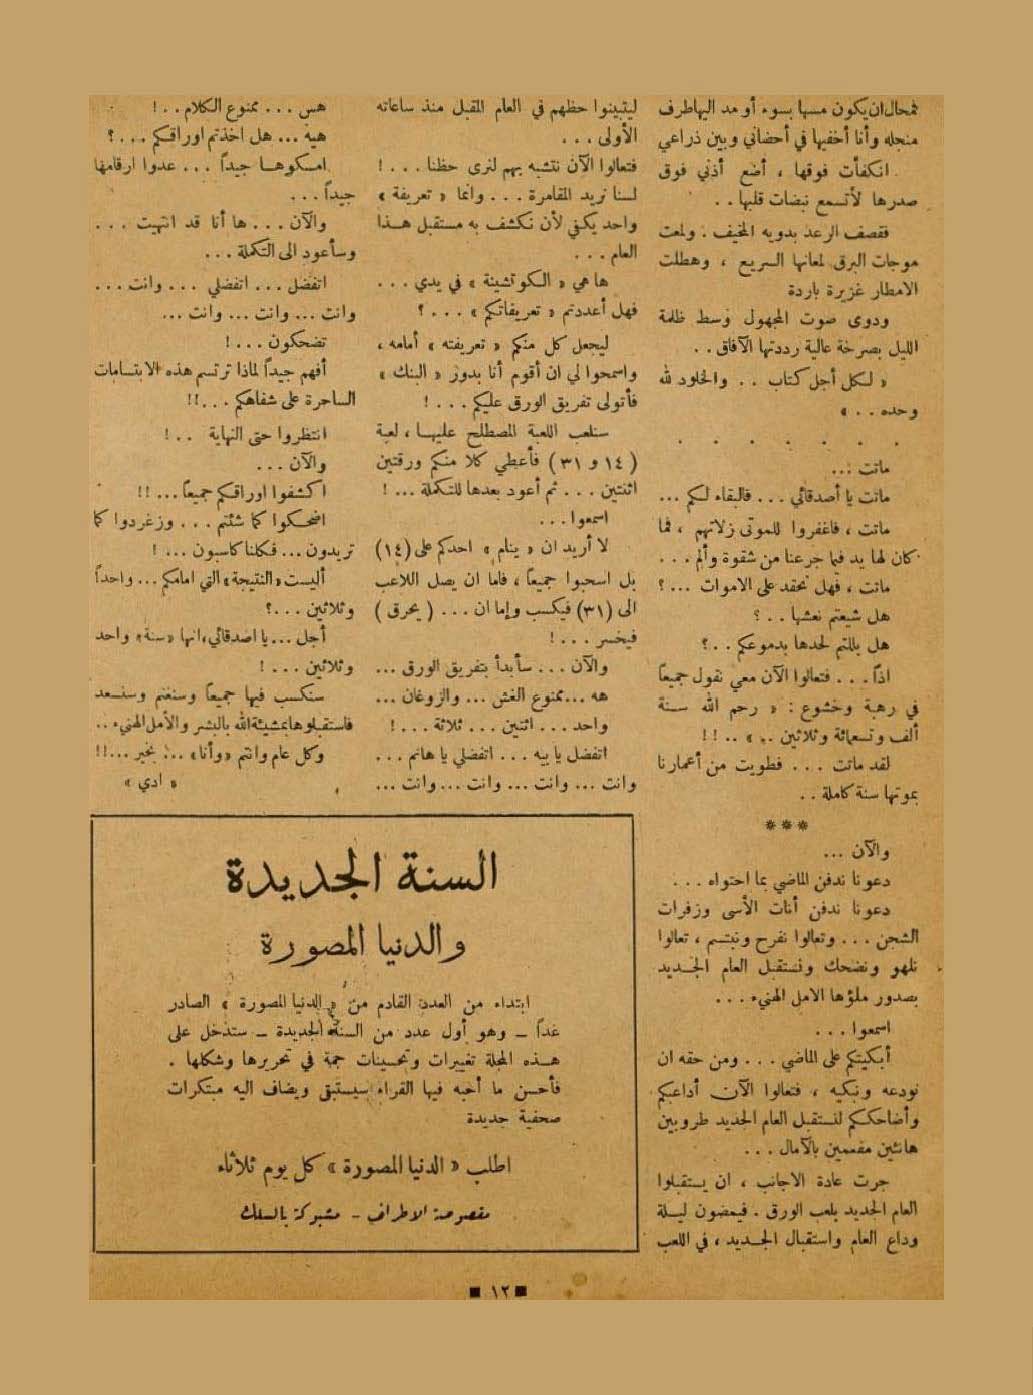 فمحال ان يكون مسها بسوء أو مد اليها طرف
منجله وأنا أخفيها في أحضاني وبين ذراعي
انكفأت فوقها ، أضع أذني فوق
صدرها لأتسمع نبضات قلبها . .
فقصف الرعد بدويه المخيف . ولمعت
موجات البرق لمعانها السريع ، وهطلت
الامطار غزيرة باردة
ودوى صوت المجهول وسط ظلمة
الليل بصرخة عالية رددتها الآفاق . .
« لكل أجل كتاب . . والخلود لله
وحده . . »
. . . . . . .
ماتت ...
ماتت يا أصدقائي . . . فالبقاء لكم ...
ماتت ، فاغفروا للموتى زلاتهم ، فما
كان لها يد فيما جرعنا من شقوة وألم . . .
ماتت ، فهل نحقد على الاموات ... ؟
هل شيعتم نعشها . . ؟
هل بللتم لحدها بدموعكم . . ؟
اذاً . . . فتعالوا الآن معي نقول جميعاً
في رهبة وخشوع : « رحم الله سنة
ألف وتسعمائة وثلاثين . . » . . ! !
لقد ماتت . . . فطويت من أعمارنا
بموتها سنة كاملة . .
***
والآن ...
دعونا ندفن الماضي بما احتواه . . .
دعونا ندفن أنات الأسى وزفرات
الشجن . . . وتعالوا نفرح ونبتسم ، تعالوا
نلهو ونضحك ونستقبل العام الجديد
بصدور ملؤها الامل الهنيء . . .
اسمعوا . . .
أبكيتكم على الماضي . . . ومن حقه ان
نودعه ونبكيه ، فتعالوا الآن أداعبكم
وأضاحككم لنستقبل العام الجديد طروبين
هانئين مفعمين بالآمال . . .
جرت عادة الاجانب ، ان يستقبلوا
العام الجديد بلعب الورق . فيمضون ليلة
وداع العام واستقبال الجديد ، في اللعب
ليتبينوا حظهم في العام المقبل منذ ساعاته
الأولى . . .
فتعالوا الآن نتشبه بهم لنرى حظنا . . . !
لسنا نريد المقامرة . . . وانما « تعريفة »
واحد يكفي لأن نكشف به مستقبل هذا
العام . . .
ها هي « الكوتشينة » في يدي . . .
فهل أعددتم « تعريفاتكم » . . . ؟
ليجعل كل منكم « تعريفته » أمامه ،
واسمحوا لي ان أقوم أنا بدور « البنك »
فأتولى تفريق الورق عليكم . . . !
سنلعب اللعبة المصطلح عليها ، لعبة
( ١٤ و ٣١ ) فأعطي كلا منكم ورقتين
اثنتين . . . ثم أعود بعدها للتكملة ... !
اسمعوا . . .
لا أريد ان « ينام » احدكم على (١٤)
بل اسحبوا جميعاً ، فاما ان يصل اللاعب
الى (٣١) فيكسب وإما ان . . . ( يحرق )
فيخسر . . . !
والآن . . . سأبدأ بتفريق الورق ...
هه ... ممنوع الغش ... والزوغان ...
واحد . . . اثنتين . . . ثلاثة . . . !
اتفضل يا بيه . . . اتفضلي يا هانم . . .
وانت ... وانت ... وانت ... وانت ...
هس . . . ممنوع الكلام . . !
هيه ... هل اخذتم اوراقكم . . . ؟
امسكوها جيداً . . . عدوا ارقامها
جيداً . . .
والآن . . . ها أنا قد انتهيت . . .
وسأعود الى التكملة . . .
اتفضل . . . اتفضلي . . . وانت . . .
وانت ... وانت ... وانت ...
تضحكون . . . !
أفهم جيداً لماذا ترتسم هذه الابتسامات
الساحرة على شفاهكم . . . ! !
انتظروا حتى النهاية . . !
والآن . . .
اكشفوا اوراقكم جميعاً ... ! !
اضحكوا كما شئتم . . . وزغردوا كما
تريدون ... فكلنا كاسبون ... !
أليست «النتيجة» التي امامكم ... واحداً
وثلاثين . . . ؟
أجل ... يا اصدقائي، انها «سنة» واحد
وثلاثين . . . !
سنكسب فيها جميعاً وسنغنم وسنسعد
فاستقبلوها بمشيئة الله بالبشر والأمل الهنيء . .
وكل عام وانتم «وأنا» ... بخير ... ! !
« ادي »
السنة الجديدة
والدنيا المصورة
ابتداء من العدد القادم من « الدنيا المصورة » الصادر
غداً – وهو أول عدد من السنة الجديدة – ستدخل على
هذه المجلة تغييرات وتحسينات جمة في تحريرها وشكلها .
فأحسن ما أحبه فيها القراء سيستبق ويضاف اليه مبتكرات
صحفية جديدة
اطلب « الدنيا المصورة » كل يوم ثلاثاء
مقصوصة الاطراف – مشبوكة بالسلك
■ ١٢ ■